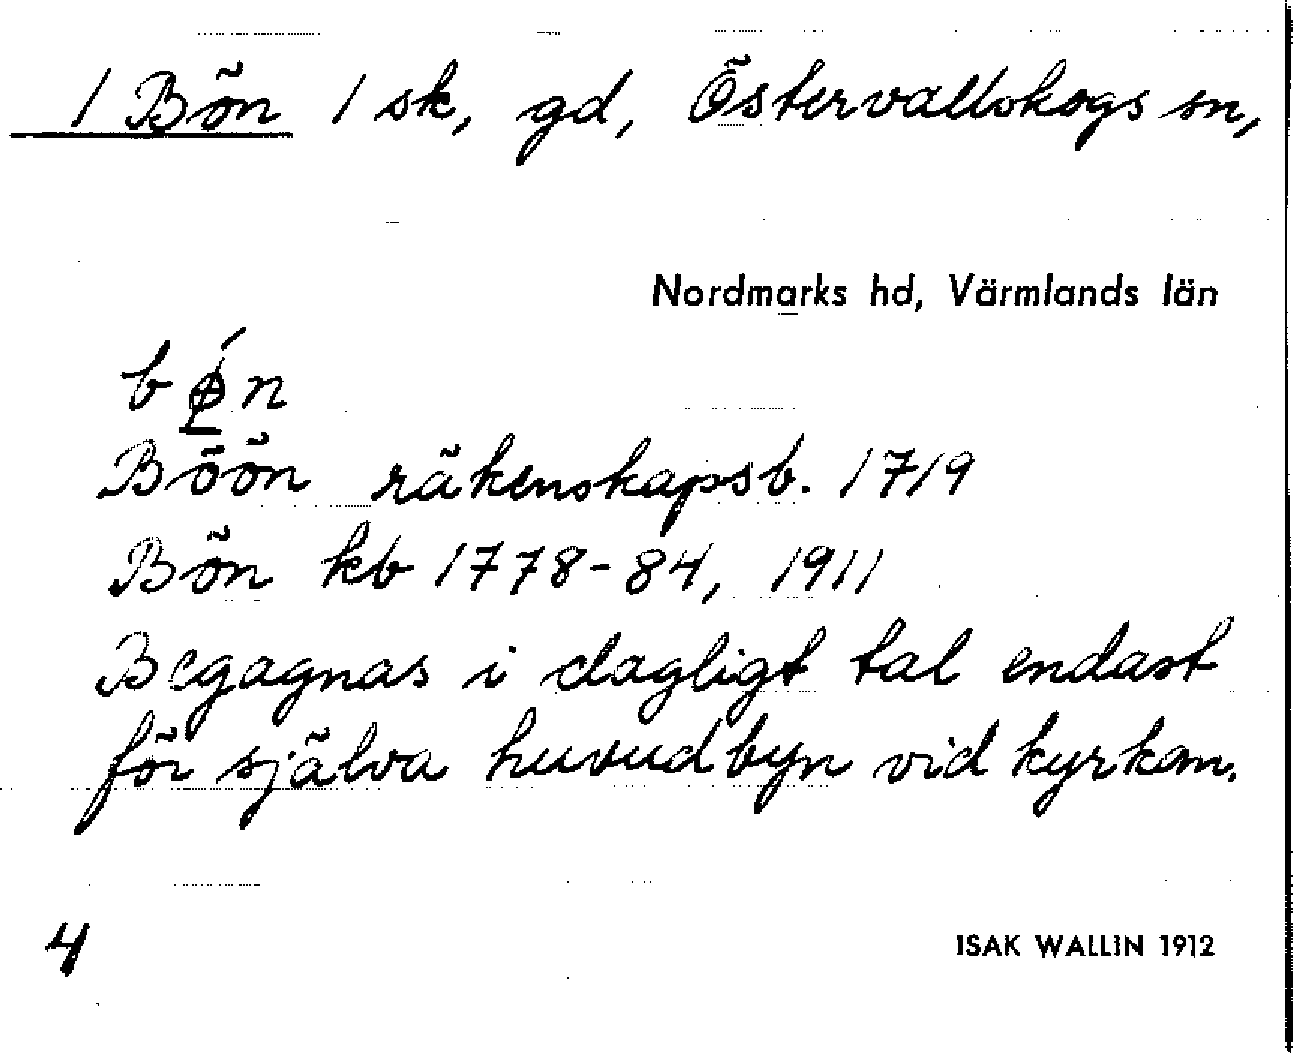 1 Bön 1 sk, gd, Östervallskogs sn,
Nordmarks hd, Värmlands län
bǿn
Böön räkenskapsb. 1719
Bön kb 1778-84, 1911
Begagnas i dagligt tal endast
för själva huvudbyn vid kyrkan.
4
ISAK WALLIN 1912